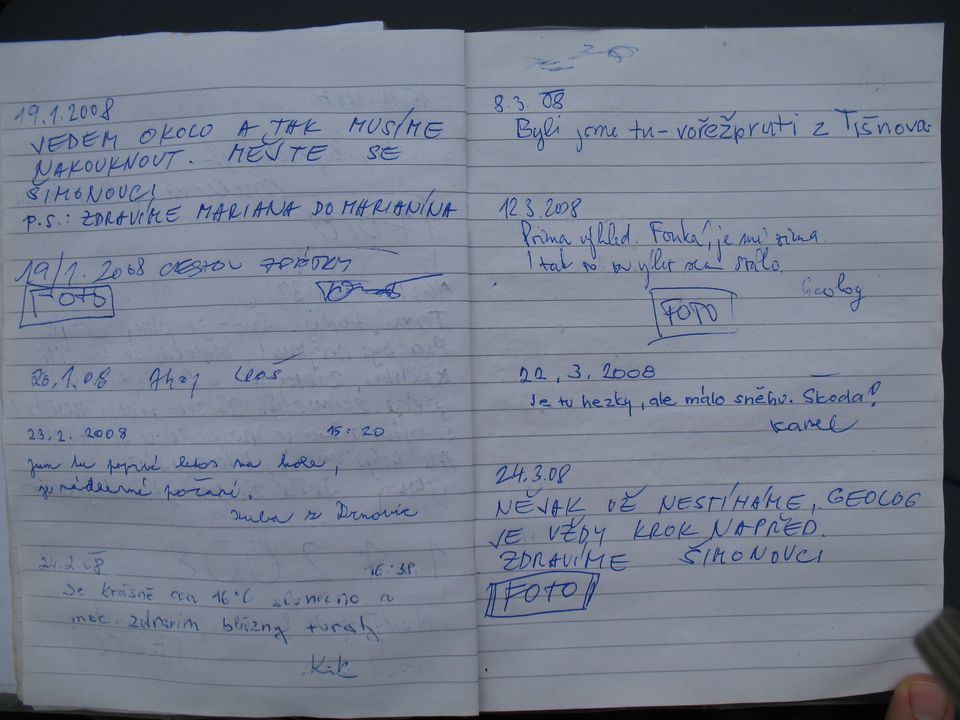 19.1.2008
JEDEM OKOLO A TAK MUSÍME
NAKOUKNOUT. MĚJTE SE
ŠIMONOVCI
P.S.: ZDRAVÍME MARIANA DO MARIANÍNA
19/1. 2008 CESTOU ZPÁTKY
FOTO
26.1.08 Ahoj Leoš
23.2. 2008 15:20
jsem tu poprvé letos na kole,
je nádherné počasí.
Kuba z Drnovic
24.2.08 16:38
Je krásně cca 16°C slunečno a
moc zdravím blázny turisty
Kik
8.3.08
Byli jsme tu - vořežpruti z Tišnova.
12.3.2008
Prima výhled. Fouká, je mi zima.
I tak to za výlet sem stálo.
Geolog
FOTO
22.3.2008
Je tu hezky, ale málo sněhu. Škoda!
Karel
24.3.08
NĚJAK UŽ NESTÍHÁME, GEOLOG
JE VŽDY KROK NAPŘED.
ZDRAVÍME ŠIMONOVCI
FOTO